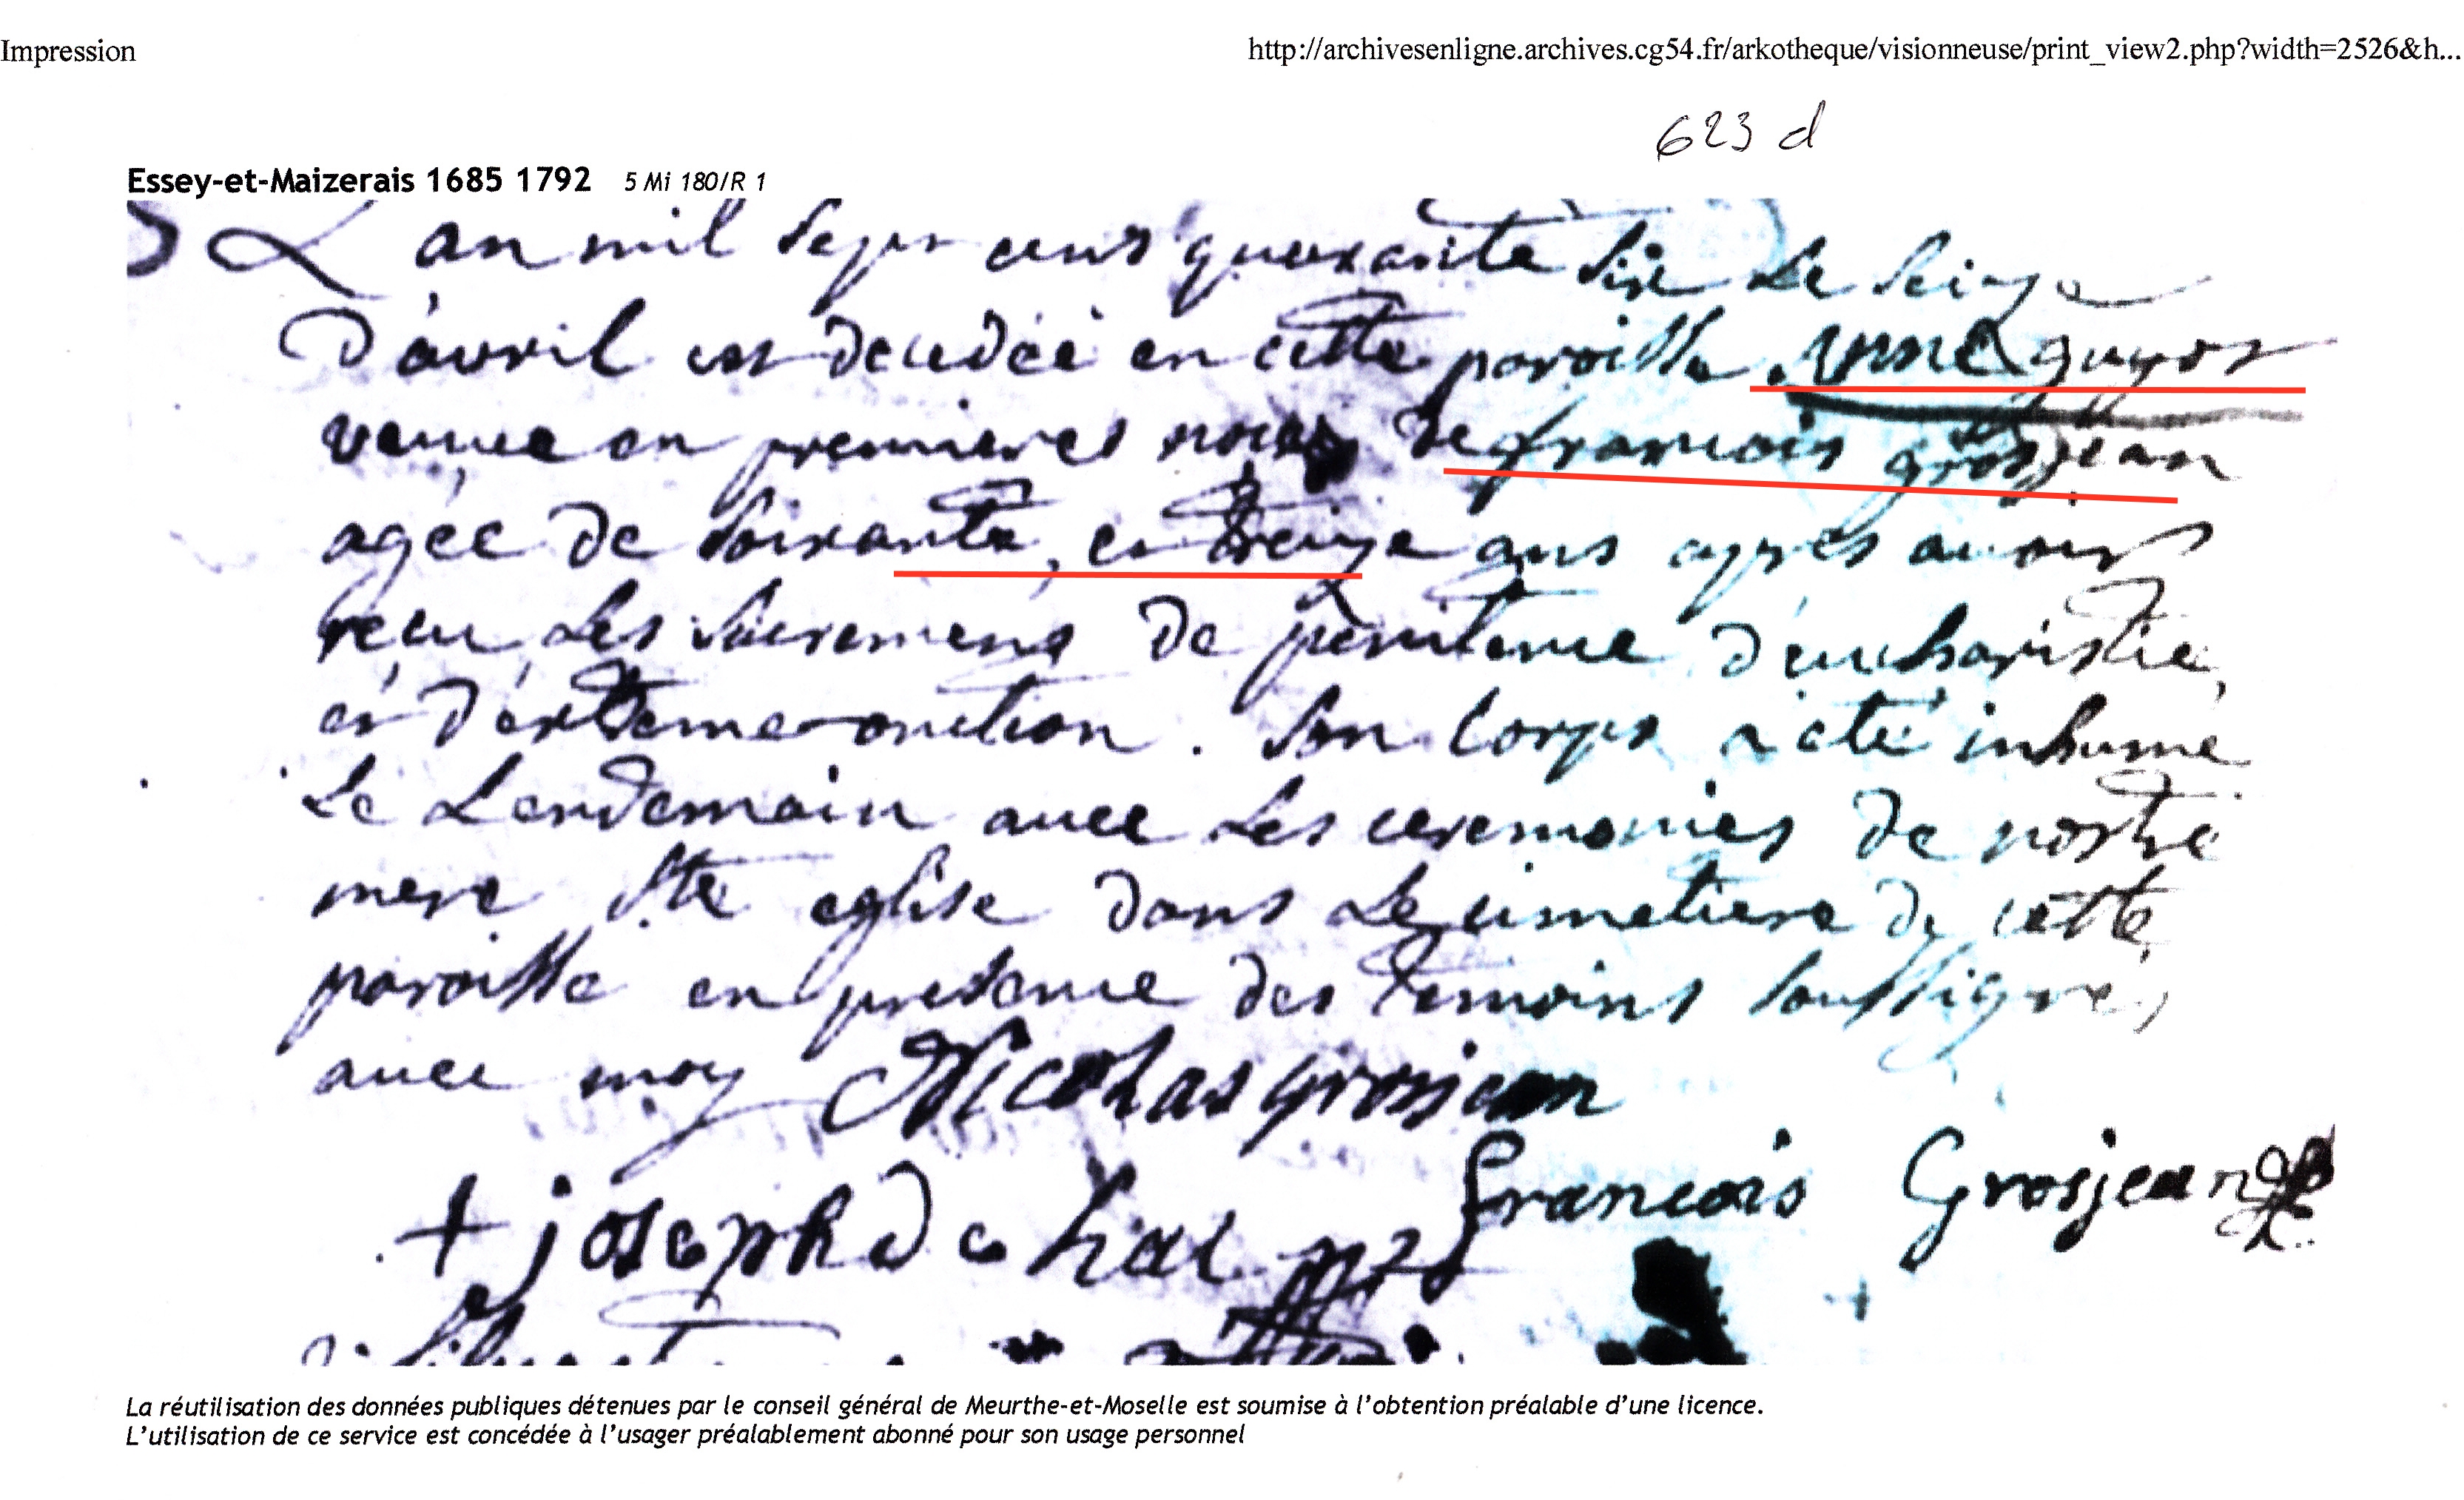 Impression
http://archivesenligne.archives.cg54.fr/arkotheque/visionneuse/print_view2.php?width=2526&h...
623 d
Essey-et-Maizerais 1685 1792 5 Mi 180/R 1
L an mil sept cent quarante six le seize
D'avril est decedée en cette paroisse Anne guyot
veuve en premieres noces de francois grosjean
agée de soixante, et treize ans apres avoir
recu les sacremens de penitence d'eucharistie,
et d'extreme onction. Son corps a eté inhumé
Le Lendemain avec les ceremonies de nostre
mere Ste eglise dans le cimetiere de cette
paroisse en presence des temoins soussignes
avec moy Nicolas grosjean
francois Grosjean
+ joseph
La réutilisation des données publiques détenues par le conseil général de Meurthe-et-Moselle est soumise à l'obtention préalable d'une licence.
L'utilisation de ce service est concédée à l'usager préalablement abonné pour son usage personnel